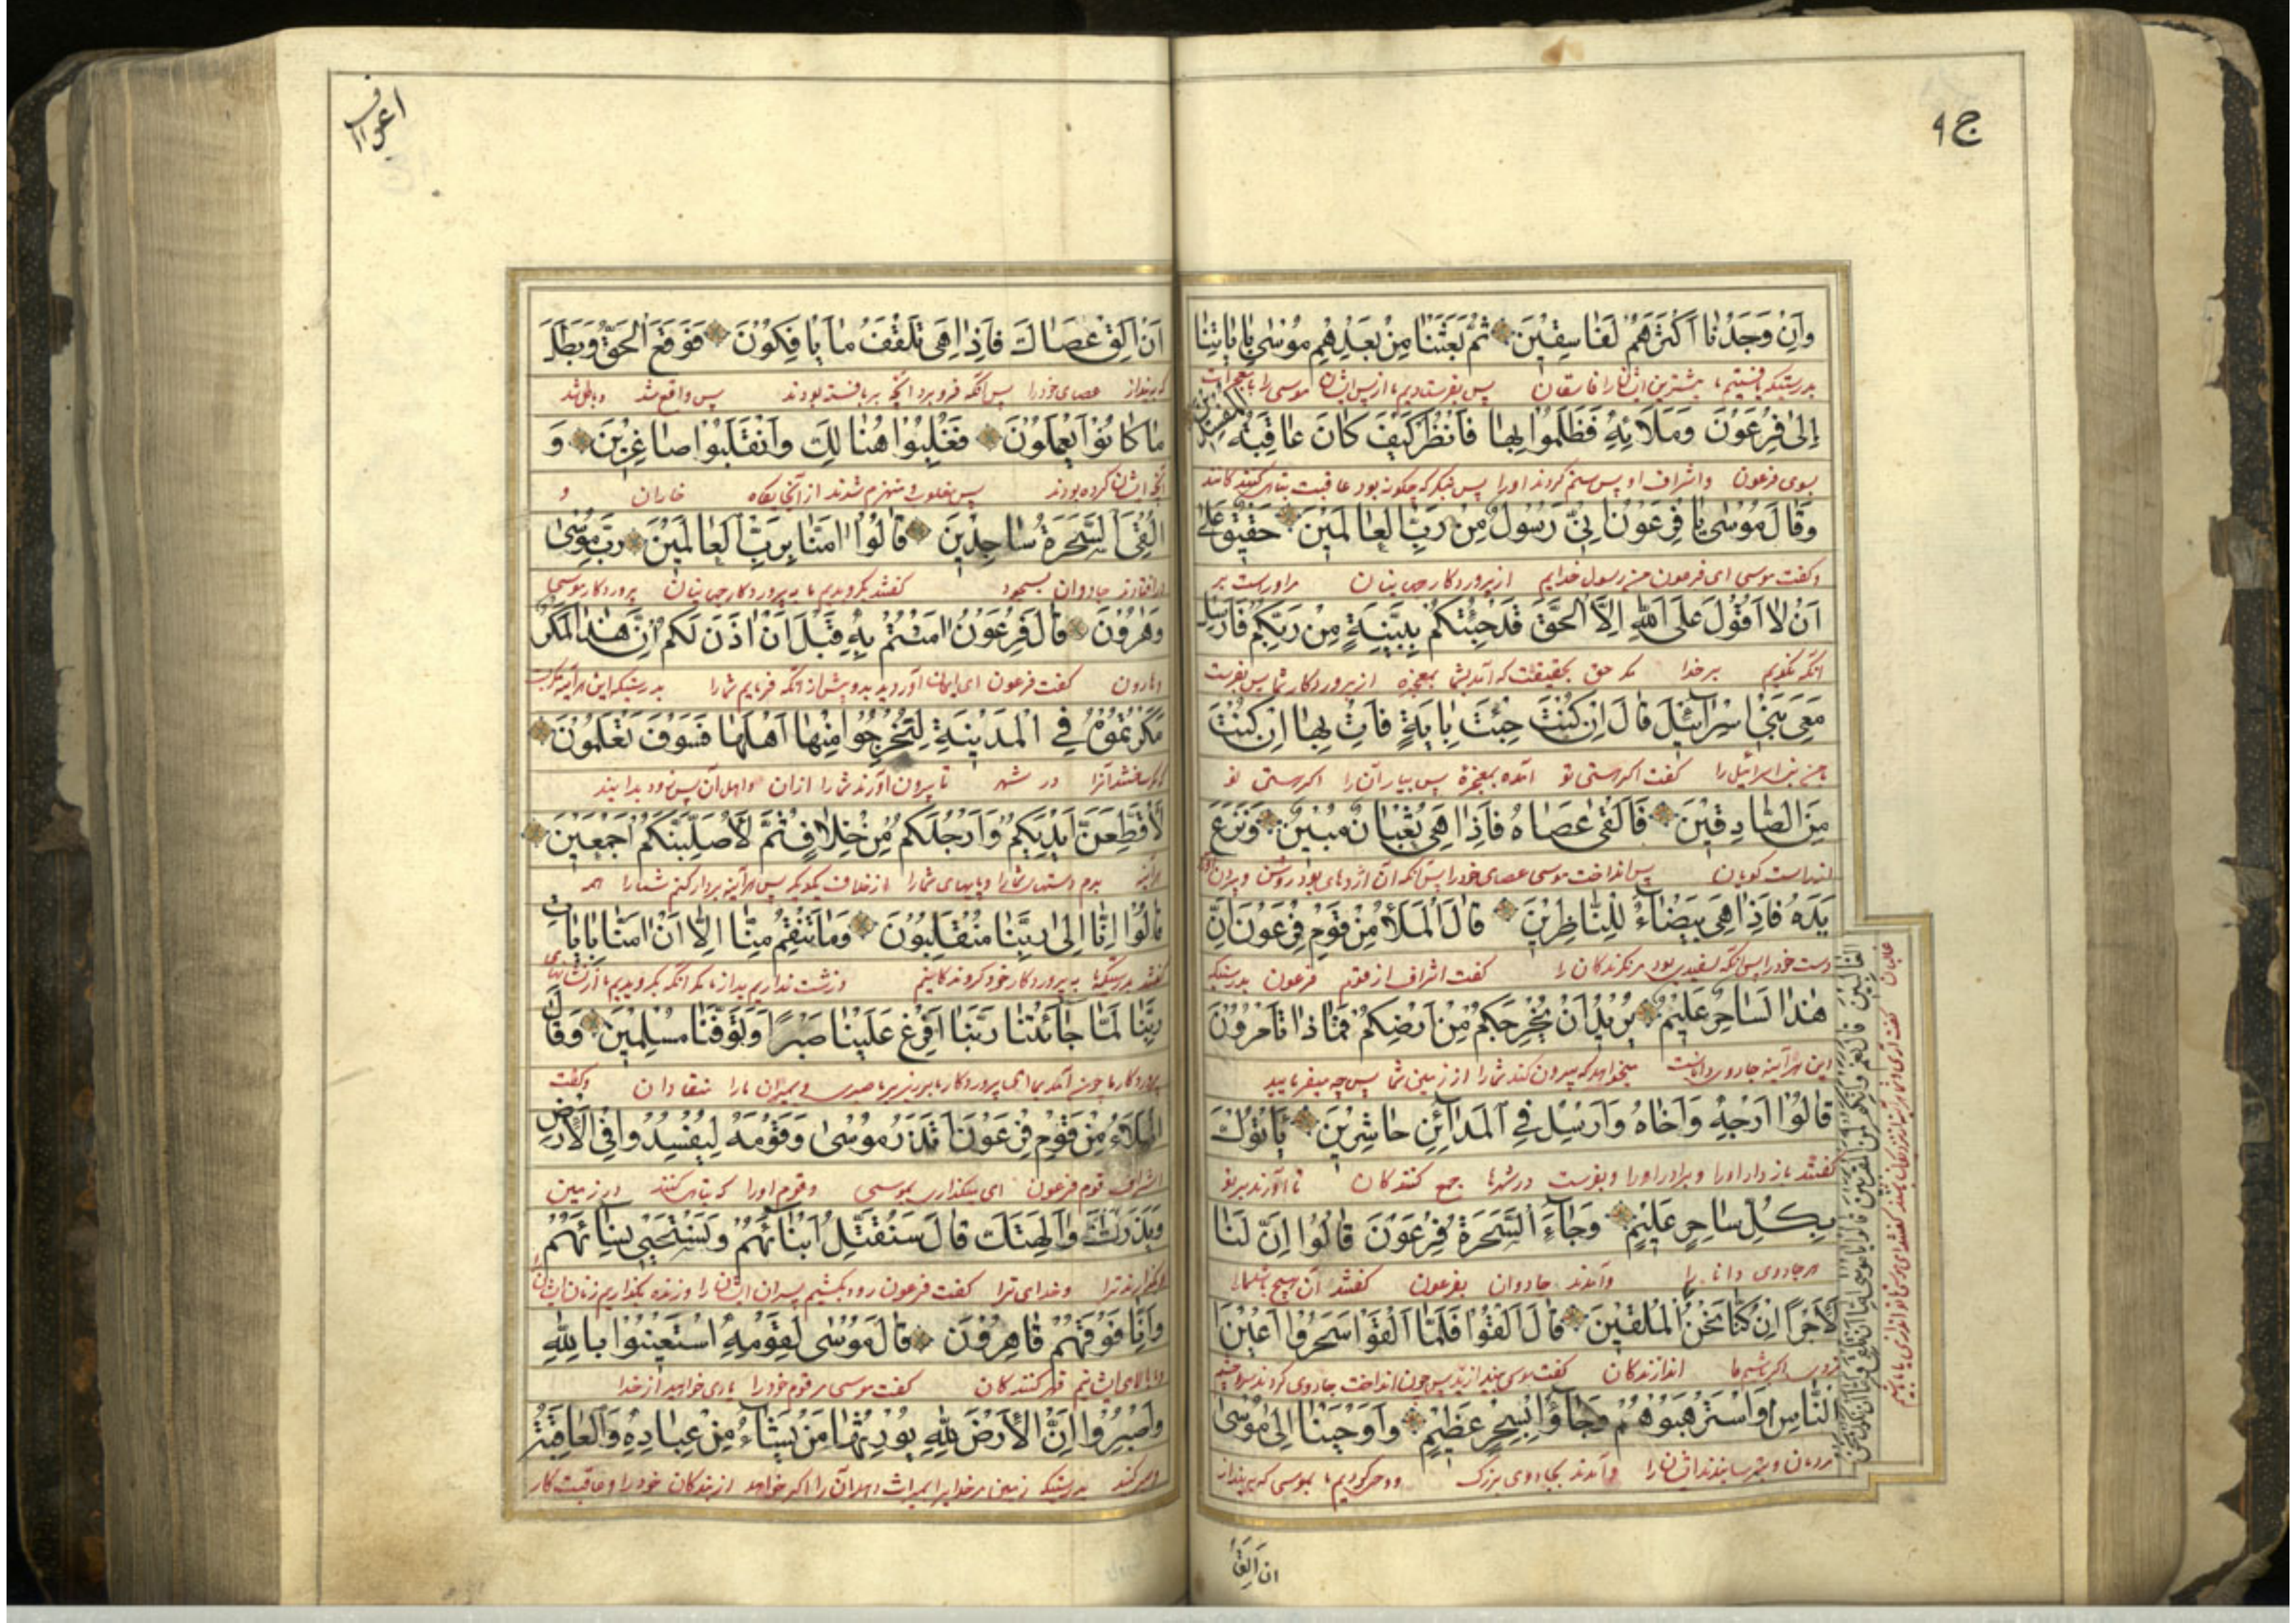 ج ٩
وَاِنْ وَجَدْنٰا اَكْثَرَهُمْ لَفٰاسِقٖينَ ثُمَّ بَعَثْنٰا مِنْ بَعْدِهِمْ مُوسٰى بِاٰيٰاتِنٰا
بدرستیکه یافتیم ما بیشترین ایشان را فاسقان پس بفرستادیم ما از پس ایشان موسی را با معجزات
اِلٰى فِرْعَوْنَ وَمَلَائِهٖ فَظَلَمُوا بِهٰا فَانْظُرْ كَيْفَ كٰانَ عٰاقِبَةُ الْمُفْسِدٖينَ
بسوی فرعون و اشراف او پس ستم کردند اورا پس بنگر که چگونه بود عاقبت تباه کنندکانند
وَقٰالَ مُوسٰى يٰا فِرْعَوْنُ اِنّٖى رَسُولٌ مِنْ رَبِّ الْعٰالَمٖينَ حَقٖيقٌ عَلٰى
وکفت موسی ای فرعون من رسول خدایم از پروردکار جهانیان سزاورست بر
اَنْ لٰا اَقُولَ عَلَى اللّٰهِ اِلَّا الْحَقَّ قَدْ جِئْتُكُمْ بِبَيِّنَةٍ مِنْ رَبِّكُمْ فَاَرْسِلْ
انکه نکویم بر خدا مکر حق بحقیقت که آمدم بشما بمعجزه از پروردکار شما پس بفرست
مَعِىَ بَنٖى اِسْرٰائٖلَ قٰالَ اِنْ كُنْتَ جِئْتَ بِاٰيَةٍ فَأْتِ بِهٰا اِنْ كُنْتَ
با من بنی اسرائیل را کفت اکر هستی تو آمده بمعجزه پس بیار آن را اکر هستی تو
مِنَ الصّٰادِقٖينَ فَاَلْقٰى عَصٰاهُ فَاِذٰا هِىَ ثُعْبٰانٌ مُبٖينٌ وَنَزَعَ
از راست کویان پس انداخت موسی عصای خودرا پس آنکه آن اژدهای بود روشن و بیرون آورد
يَدَهُ فَاِذٰا هِىَ بَيْضٰاءُ لِلنّٰاظِرٖينَ قٰالَ الْمَلَأُ مِنْ قَوْمِ فِرْعَوْنَ اِنَّ
دست خودرا پس آنکه سفیدی بود مر نکرندکان را کفت اشراف از قوم فرعون بدرستیکه
هٰذٰا لَسٰاحِرٌ عَلٖيمٌ يُرٖيدُ اَنْ يُخْرِجَكُمْ مِنْ اَرْضِكُمْ فَمٰاذٰا تَأْمُرُونَ
این هرآینه جادوی داناست میخواهد که بیرون کند شما را از زمین شما پس چه میفرمایید
قٰالُوا اَرْجِهْ وَاَخٰاهُ وَاَرْسِلْ فِى الْمَدٰائِنِ حٰاشِرٖينَ يَأْتُوكَ
کفتند باز دار اورا و برادر اورا و بفرست در شهرها جمع کنندکان تا آورند بر تو
بِكُلِّ سٰاحِرٍ عَلٖيمٍ وَجٰاءَ السَّحَرَةُ فِرْعَوْنَ قٰالُوا اِنَّ لَنٰا
هر جادوی دانا را و آمدند جادوان بفرعون کفتند
لَاَجْرًا اِنْ كُنّٰا نَحْنُ الْغٰالِبٖينَ قٰالَ نَعَمْ وَاِنَّكُمْ لَمِنَ الْمُقَرَّبٖينَ قٰالُوا يٰا مُوسٰى اِمّٰا اَنْ تُلْقِىَ وَاِمّٰا اَنْ نَكُونَ نَحْنُ الْمُلْقٖينَ قٰالَ اَلْقُوا فَلَمّٰا اَلْقَوْا سَحَرُوا اَعْيُنَ
اندازندکان کفت موسی بیندازید پس چون انداخت جادوی کردند
النّٰاسِ وَاسْتَرْهَبُوهُمْ وَجٰاؤُا بِسِحْرٍ عَظٖيمٍ وَاَوْحَيْنٰا اِلٰى مُوسٰى
مردمان و بترسانیدند ایشان را و آمدند بجادوی بزرک و وحی کردیم ما بموسی که بینداز
ان الق
اعراف
اَنْ اَلْقِ عَصٰاكَ فَاِذٰا هِىَ تَلْقَفُ مٰا يَأْفِكُونَ فَوَقَعَ الْحَقُّ وَبَطَلَ
که بینداز عصای خودرا پس آنکه فرو برد آنچه بر بافته بودند پس واقع شد و باطل شد
مٰا كٰانُوا يَعْمَلُونَ فَغُلِبُوا هُنٰالِكَ وَانْقَلَبُوا صٰاغِرٖينَ وَ
آنچه ایشان کرده بودند پس مغلوب و منهزم شدند از آنجایکاه خاران و
اُلْقِىَ السَّحَرَةُ سٰاجِدٖينَ قٰالُوا اٰمَنّٰا بِرَبِّ الْعٰالَمٖينَ رَبِّ مُوسٰى
در افتادند جادوان بسجود کفتند بکرویدیم ما به پروردکار جهانیان پروردکار موسی
وَهٰرُونَ قٰالَ فِرْعَوْنُ اٰمَنْتُمْ بِهٖ قَبْلَ اَنْ اٰذَنَ لَكُمْ اِنَّ هٰذٰا لَمَكْرٌ
و هارون کفت فرعون ای ایمان آوردید بدو پیش از آنکه فرمایم شما را بدرستیکه این هرآینه مکریست
مَكَرْتُمُوهُ فِى الْمَدٖينَةِ لِتُخْرِجُوا مِنْهٰا اَهْلَهٰا فَسَوْفَ تَعْلَمُونَ
در شهر تا بیرون آورند شما را ازان و اهل آن پس زود بدانید
لَاُقَطِّعَنَّ اَيْدِيَكُمْ وَاَرْجُلَكُمْ مِنْ خِلٰافٍ ثُمَّ لَاُصَلِّبَنَّكُمْ اَجْمَعٖينَ
هرآینه ببرم دستهای شما را و پایهای شما را از خلاف یکدیکر پس هرآینه بردار کنم شما را همه
قٰالُوا اِنّٰا اِلٰى رَبِّنٰا مُنْقَلِبُونَ وَمٰا تَنْقِمُ مِنّٰا اِلّٰا اَنْ اٰمَنّٰا بِاٰيٰاتِ
کفتند بدرستیکه ما به پروردکار خود
رَبِّنٰا لَمّٰا جٰائَتْنٰا رَبَّنٰا اَفْرِغْ عَلَيْنٰا صَبْرًا وَتَوَفَّنٰا مُسْلِمٖينَ وَقٰالَ
پروردکار ما چون آمد بما ای پروردکار ما بریز بر ما صبری و بمیران مارا منقادان وکفت
الْمَلَاُ مِنْ قَوْمِ فِرْعَوْنَ اَتَذَرُ مُوسٰى وَقَوْمَهُ لِيُفْسِدُوا فِى الْاَرْضِ
اشراف قوم فرعون ای میکذاری موسی و قوم اورا که تباهی کنند در زمین
وَيَذَرَكَ وَاٰلِهَتَكَ قٰالَ سَنُقَتِّلُ اَبْنٰائَهُمْ وَنَسْتَحْيٖى نِسٰائَهُمْ
و بکذارند ترا و خدای ترا کفت فرعون زود بکشیم پسران ایشان را و زنده بکذاریم زنان ایشان را
وَاِنّٰا فَوْقَهُمْ قٰاهِرُونَ قٰالَ مُوسٰى لِقَوْمِهِ اسْتَعٖينُوا بِاللّٰهِ
و ما بالای ایشانیم قهر کنندکان کفت موسی مر قوم خودرا یاری خواهید از خدا
وَاصْبِرُوا اِنَّ الْاَرْضَ لِلّٰهِ يُورِثُهٰا مَنْ يَشٰاءُ مِنْ عِبٰادِهٖ وَالْعٰاقِبَةُ
و صبر کنید بدرستیکه زمین مر خدایرا میراث دهد آن را اکر خواهد از بندکان خودرا و عاقبت کار